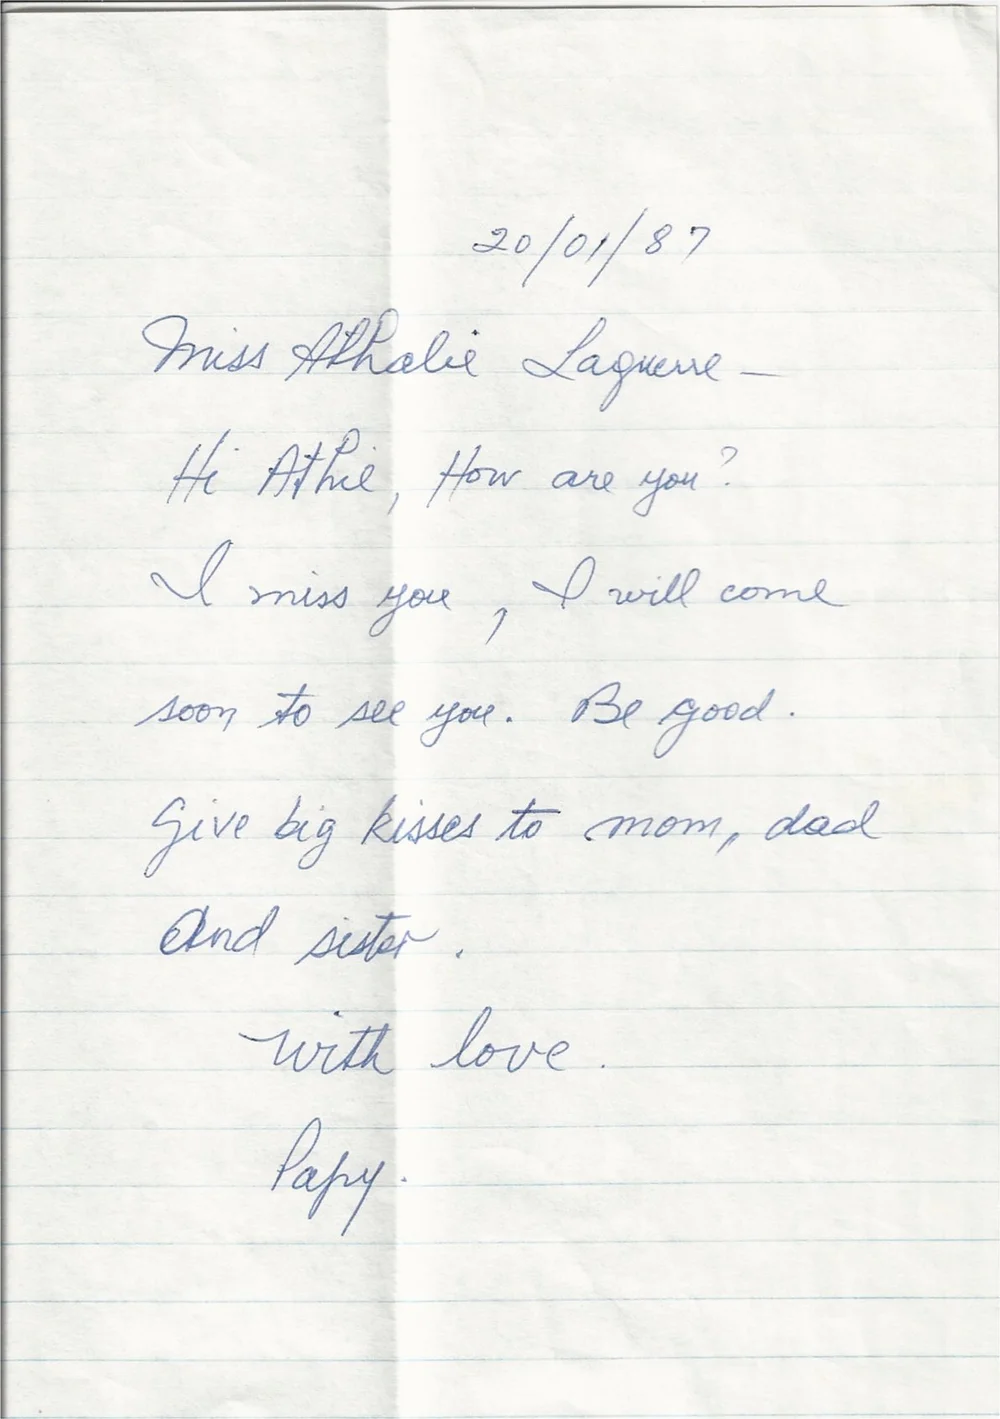 20/01/87
Miss Athalie Laguerre –
Hi Athie, How are you?
I miss you, I will come
soon to see you. Be good.
Give big kisses to mom, dad
And sister.
With love.
Papy.